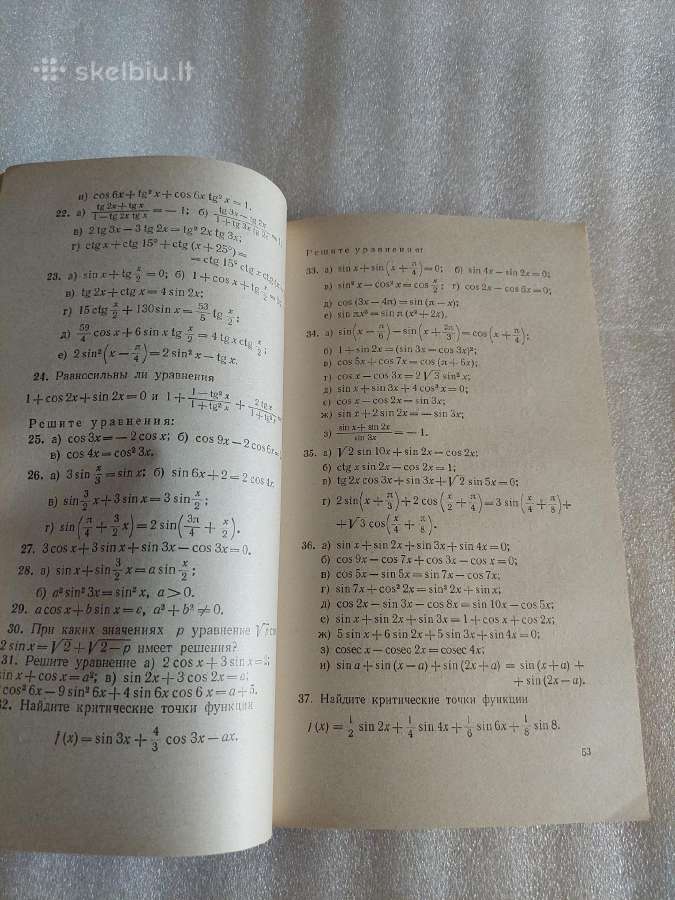 skelbiu.lt
и) cos 6x + tg² x + cos 6x tg² x = 1.
22. а) (tg 2x + tg x)/(1 − tg 2x tg x) = − 1; б) (tg 3x − tg 2x)/(1 + tg 3x tg 2x) = 1.
в) 2 tg 3x − 3 tg 2x = tg² 2x tg 3x;
г) ctg x + ctg 15° + ctg (x + 25°) =
= ctg 15° ctg x ctg
23. а) sin x + tg x/2 = 0; б) 1 + cos x + tg x/2
в) tg 2x + ctg x = 4 sin 2x;
г) 15 ctg x/2 + 130 sin x = 53/5 tg x/2;
д) 59/4 cos x + 6 sin x tg x/2 = 4 tg x ctg x/2;
е) 2 sin² (x − π/4) = 2 sin² x − tg x.
24. Равносильны ли уравнения
1 + cos 2x + sin 2x = 0 и 1 + (1 − tg² x)/(1 + tg² x) + 2 tg x/(1 + tg²
Решите уравнения:
25. а) cos 3x = − 2 cos x; б) cos 9x − 2 cos 6x =
в) cos 4x = cos² 3x.
26. а) 3 sin x/3 = sin x; б) sin 6x + 2 = 2 cos 4x
в) sin 3/2 x + 3 sin x = 3 sin x/2;
г) sin (π/4 + 3/2 x) = 2 sin (3π/4 + x/2).
27. 3 cos x + 3 sin x + sin 3x − cos 3x = 0.
28. а) sin x + sin 3/2 x = a sin x/2;
б) a² sin² 3x = sin² x, a > 0.
29. a cos x + b sin x = c, a² + b² ≠ 0.
30. При каких значениях p уравнение
2 sin x = √2 + √2 − p имеет решения?
31. Решите уравнение а) 2 cos x + 3 sin x = 2;
sin x + cos x = a²; в) sin 2x + 3 cos 2x = a;
cos² 6x − 9 sin² 6x + 4 sin 6x cos 6x = a + 5.
32. Найдите критические точки функции
f (x) = sin 3x + 4/3 cos 3x − ax.
Решите уравнение:
33. а) sin x + sin (x + π/4) = 0; б) sin 4x − sin 2x = 0;
в) sin² x − cos² x = cos x/2; г) cos 2x − cos 6x = 0;
д) cos (3x − 4π) = sin (π − x);
е) sin πx² = sin π (x² + 2x).
34. а) sin (x − π/6) − sin (x + 2π/3) = cos (x + π/4);
б) 1 + sin 2x = (sin 3x − cos 3x)²;
в) cos 5x + cos 7x = cos (π + 6x);
г) cos x − cos 3x = 2 √3 sin² x;
д) sin x + sin 3x + 4 cos² x = 0;
е) cos x − cos 2x = sin 3x;
ж) sin x + 2 sin 2x = − sin 3x;
з) (sin x + sin 2x)/sin 3x = − 1.
35. а) √2 sin 10x + sin 2x = cos 2x;
б) ctg x sin 2x − cos 2x = 1;
в) tg 2x cos 3x + sin 3x + √2 sin 5x = 0;
г) 2 sin (x + π/3) + 2 cos (x/2 + π/4) = 3 sin (x/4 + π/8) +
+ √3 cos (x/4 + π/8).
36. а) sin x + sin 2x + sin 3x + sin 4x = 0;
б) cos 9x − cos 7x + cos 3x − cos x = 0;
в) cos 5x − sin 5x = sin 7x − cos 7x;
г) sin 7x + cos² 2x = sin² 2x + sin x;
д) cos 2x − sin 3x − cos 8x = sin 10x − cos 5x;
е) sin x + sin 2x + sin 3x = 1 + cos x + cos 2x;
ж) 5 sin x + 6 sin 2x + 5 sin 3x + sin 4x = 0;
з) cosec x − cosec 2x = cosec 4x;
и) sin a + sin (x − a) + sin (2x + a) = sin (x + a) +
+ sin (2x − a).
37. Найдите критические точки функции
f (x) = 1/2 sin 2x + 1/4 sin 4x + 1/6 sin 6x + 1/8 sin 8.
53